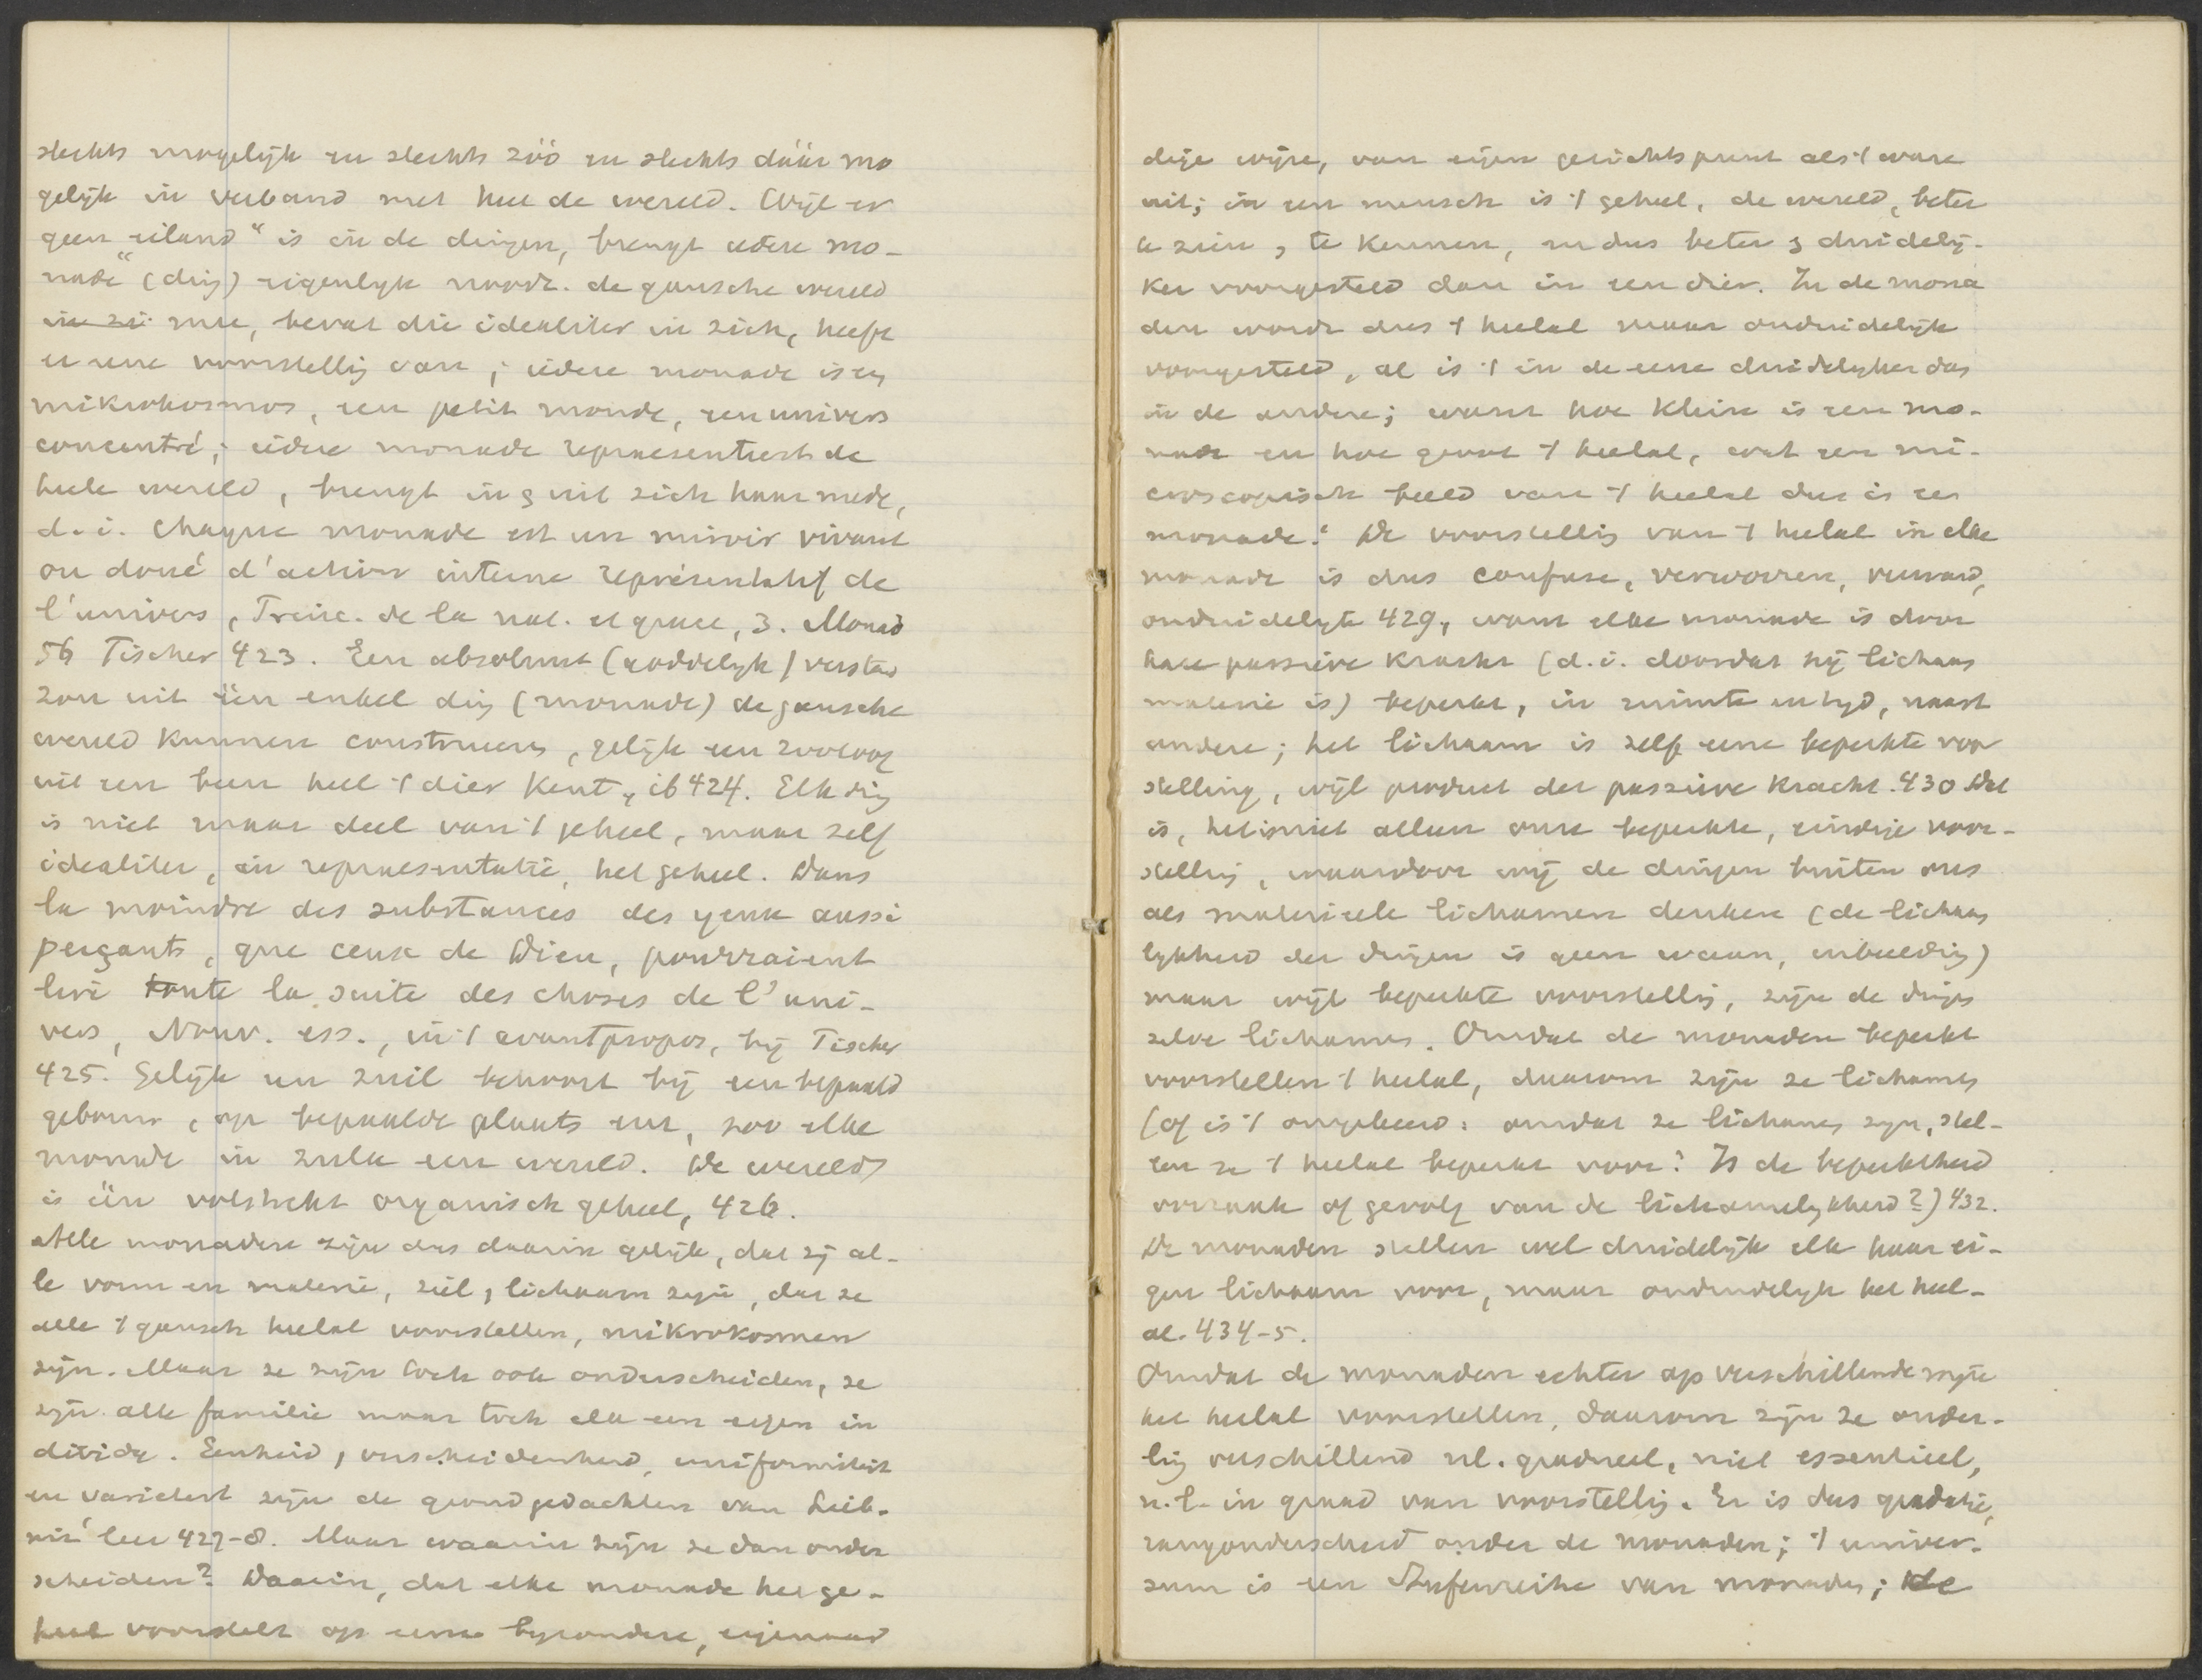 slechts mogelijk en slechts zóó en slechts dáár mo
gelijk in verband met heel de wereld. Wijl er
geen „eiland“ is in de dingen, brengt iedere mo-
nade (ding) eigenlijk noodz. de gansche wereld
in zi mee, bevat die idealiter in zich, heeft
er eene voorstellig van; iedere monade is een
mikrokosmos, een petit monde, een univers
concentré; iedere monade repraesenteert de
heele wereld, brengt in & uit zich haar mede,
d.i. Chaque monade est un miroir vivant
ou doué d'action interne représentatif de
l'univers, Princ. de la nat. et grace, 3. Monad
56 Fischer 423. Een absoluut (goddelijk) verstand
zou uit één enkel ding (monade) de gansche
wereld kunnen construeren, gelijk een zooloog
uit een been heel 't dier kent, ib 424. Elk ding
is niet maar deel van 't geheel, maar zelf
idealiter, in repraesentatie, het geheel. Dans
la moindre des substances des yeux aussi
perçants, que ceux de Dieu, pourraient
lire toute la suite des choses de l'uni-
vers, Nouv. ess., in 't avantpropos, bij Fischer
425. Gelijk een zuil behoort bij een bepaald
gebouw, op bepaalde plaats enz, zoo elke
monade in zulk een wereld. De wereld
is één volstrekt organisch geheel, 426.
Alle monaden zijn dus daarin gelijk, dat zij al-
le vorm en materie, ziel & lichaam zijn, dat ze
alle 't gansch heelal voorstellen, mikrokosmen
zijn. Maar ze zijn toch ook onderscheiden, ze
zijn alle familie maar toch elk een eigen in
dividu. Eenheid & verscheidenheid, uniformiteit
en varieteit zijn de grondgedachten van Leib-
niz' leer 427-8. Maar waarin zijn ze dan onder
scheiden? Daarin, dat elke monade het ge-
heel voorstelt op eene bijzondere, eigenaar
dige wijze, van eigen gezichtspunt als 't ware
uit; in een mensch is 't geheel, de wereld, beter
te zien, te kennen, en dus beter & duidelij-
ker voorgesteld dan in een dier. In de mona
den wordt dus 't heelal maar onduidelijk
voorgesteld, al is 't in de eene duidelijker dan
in de andere; want hoe klein is een mo-
nade en hoe groot 't heelal, wat een mi-
croscopisch beeld van 't heelal dus is een
monade! De voorstellig van 't heelal in elke
monade is dus confuse, verworren, verward,
onduidelijk 429, want elke monade is door
hare passieve kracht (d.i. doordat zij lichaam
materie is) beperkt, in ruimte en tijd, naast
andere; het lichaam is zelf eene beperkte voor
stelling, wijl product der passieve kracht. 430 Dat
is, het is niet alleen onze beperkte, eindige voor-
stellig, waardoor wij de dingen buiten ons
als materieele lichamen denken (de lichaam
lijkheid der dingen is geen waan, inbeeldig)
maar wijl beperkte voorstellig, zijn de dingen
zelve lichamen. Omdat de monaden beperkt
voorstellen 't heelal, daarom zijn ze lichamen
(of is 't omgekeerd: omdat ze lichamen zijn, stel-
len ze 't heelal beperkt voor? Is de beperktheid
oorzaak of gevolg van de lichamelijkheid?) 432.
De monaden stellen wel duidelijk elk haar ei-
gen lichaam voor, maar onduidelijk het heel-
al. 434-5.
Omdat de monaden echter op verschillende wijze
het heelal voorstellen, daarom zijn ze onder-
lig verschillend nl. gradueel, niet essentieel,
n.l. in graad van voorstellig. Er is dus gradatie,
rangonderscheid onder de monaden; 't univer-
sum is een Stufenreihe van monaden; de